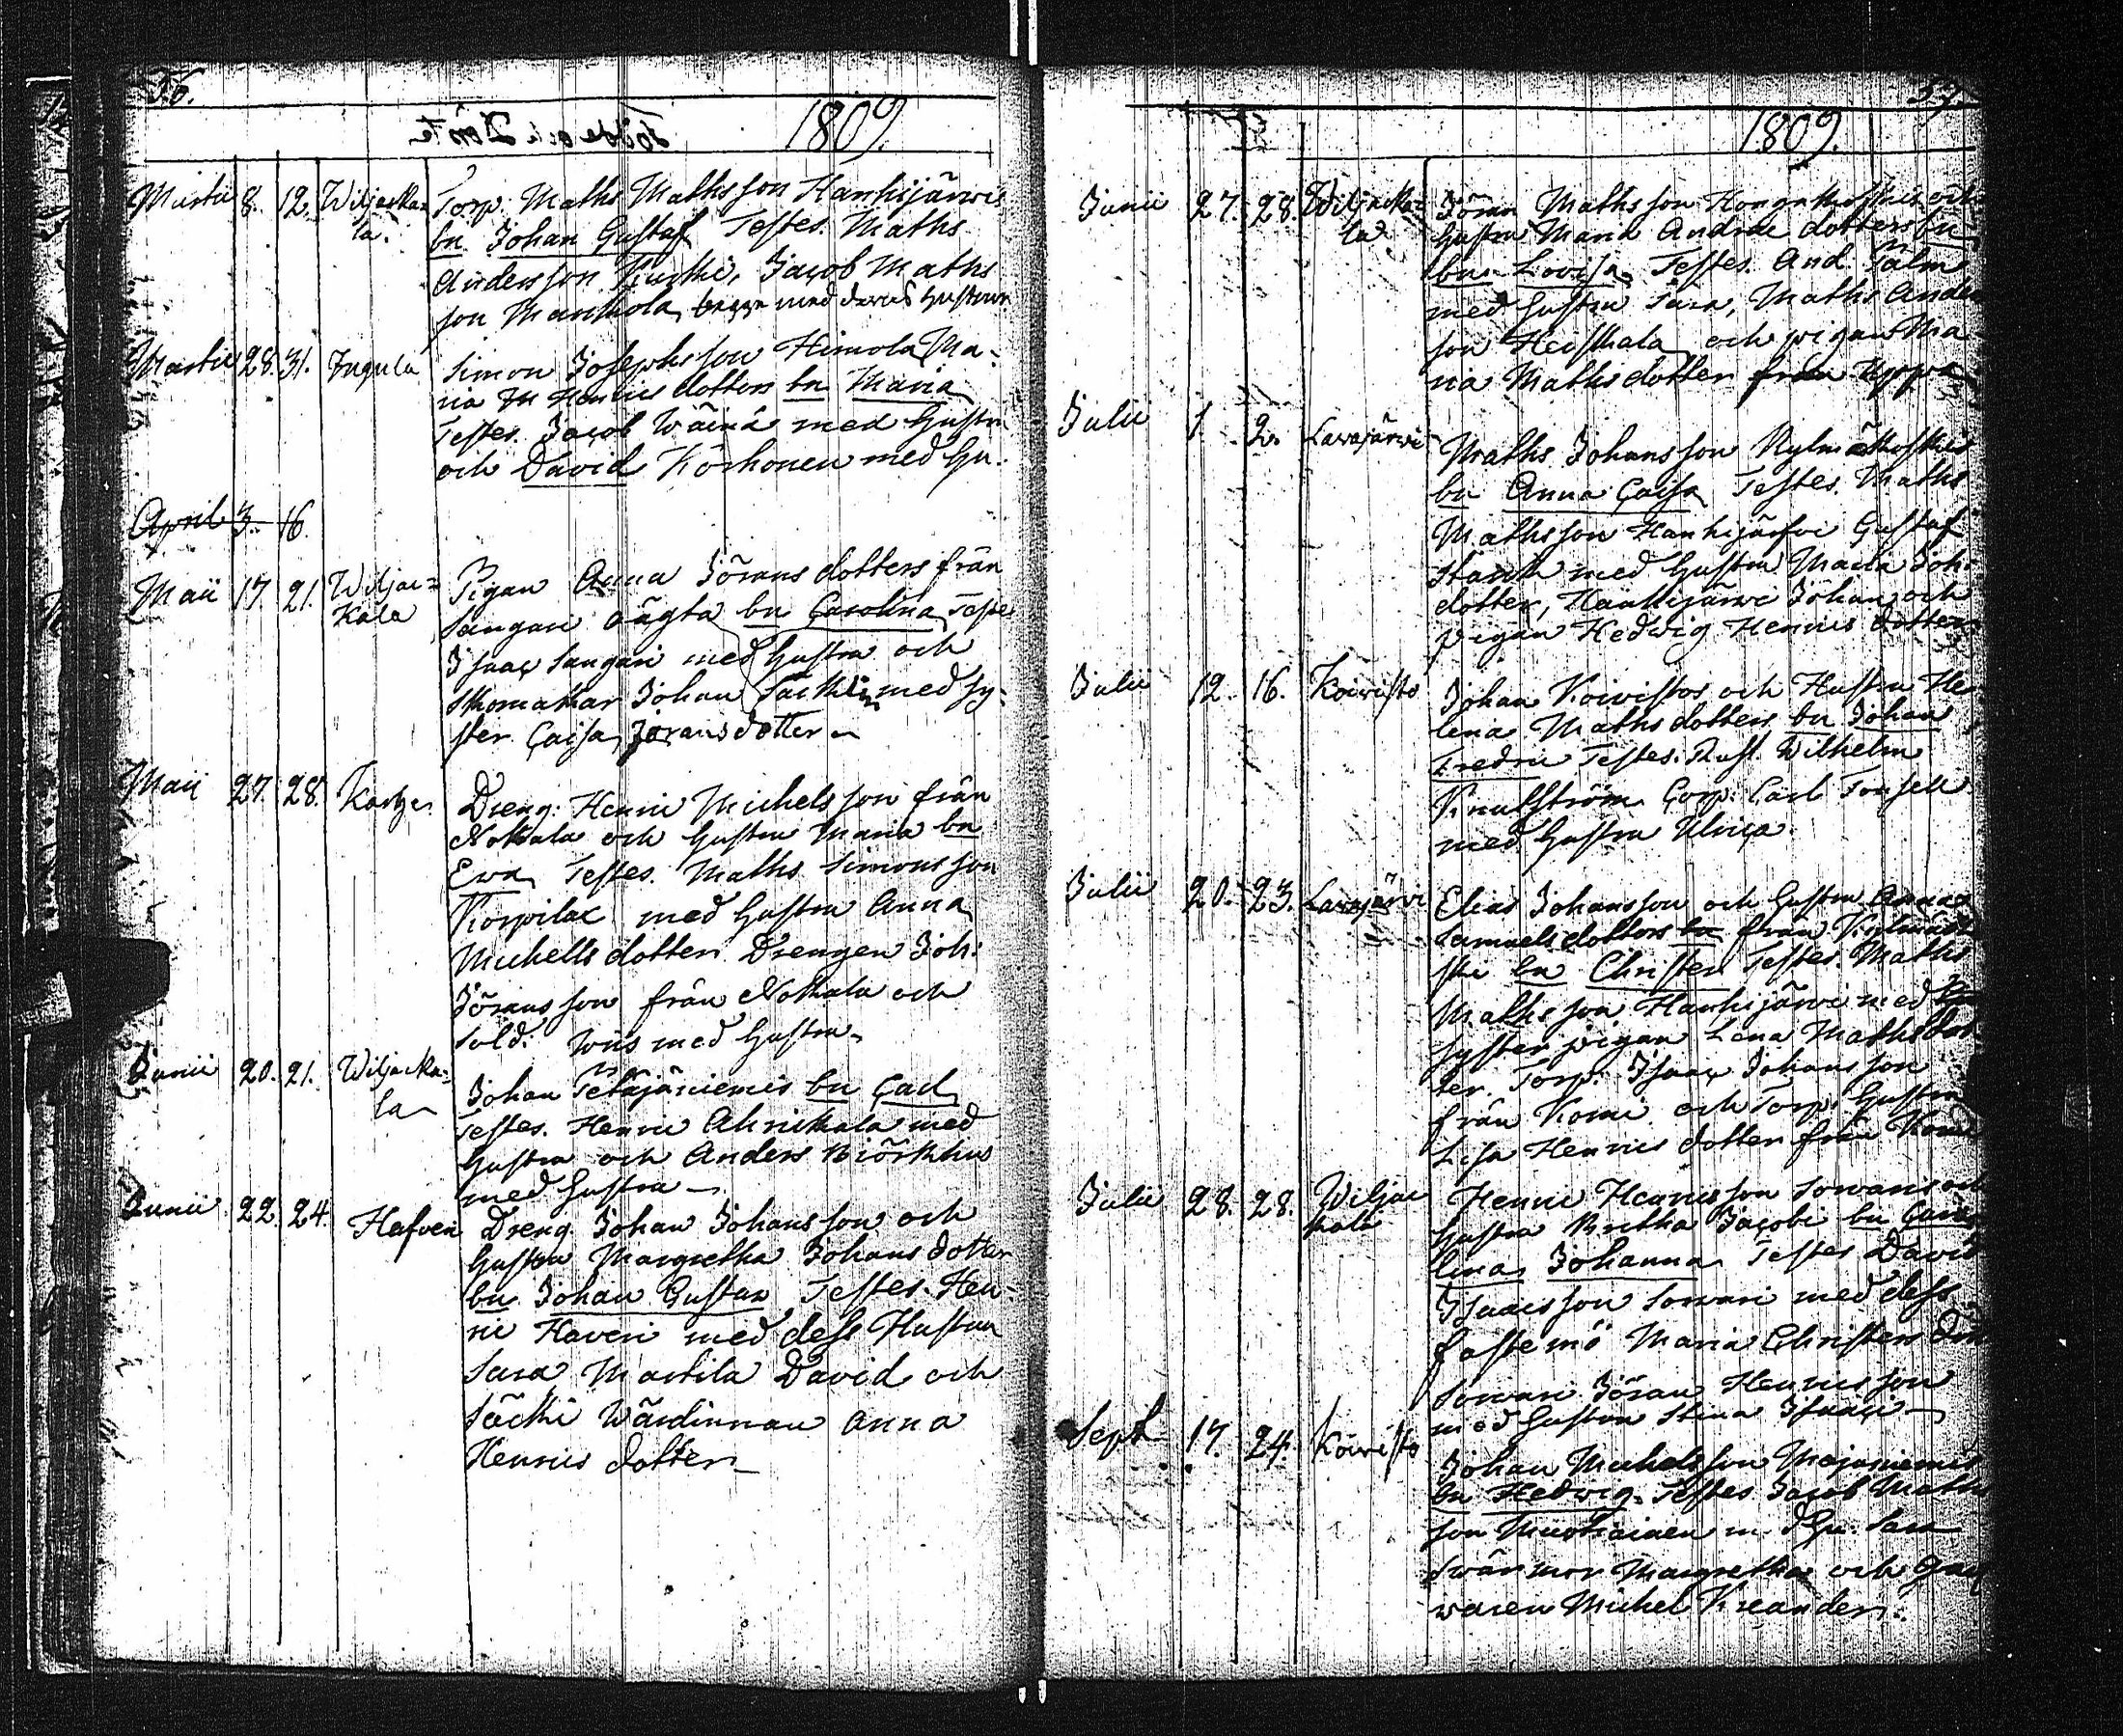 56.
Födde och Döpte 1809.
Martii 8. 12. Wiljacka= Torp. Maths Mathsson Hanhijärwis
la. bn Johan Gustaf Testes. Maths
Andersson Kurki, Jacob Maths
son Manthola, begge med deras Hustrur
Martii 28. 31. Inqula Simon Josephsson Himola Ma-
ria Henrics dotters bn Maria
Testes. Jacob Wäinä med Hustru
och David Körhonen med Hu.
April 3. 16.
Maii 17. 21. Wiljac= Pigan Anna Jörans dotters från
kala Sangari oägta bn Carolina Teste
Isaac Sangari med Hustru och
Skomakar Johan med Sy-
ster Caisa Jöransdotter
Maii 27. 28. Dreng: Henric Michelsson från
Nokkala och Hustru Maria bn
Ewa Testes. Maths Simonsson
Korpilac med Hustru Anna
Michells dotter Drengen Joh:
Jöransson från Nokkala och
Sold: Wiis med Hustru
Junii 20. 21. Wiljacka=
la Johan Tetäjäniemis bn Carl
Testes. Henric Ahrikala med
Hustru och Anders Biörkhus
med Hustru
Junii 22. 24. Hafven Dreng Johan Johansson och
Hustru Margretha Johans dotter
bn Johan Gustav Testes. Hen-
ric Haveri med dess Hustru
Sara Martila David och
Säcki Wärdinnan Anna
Henrics dotter
57.
1809.
Junii 27. 28. Wiljacka= Jöran Mathsson och
la. Hustru Maria Andrae dotters bn
Lovisa Testes. And. Palm
med Hustru Sara, Maths Anders
son Heiskala och pigan Ma-
ria Mathsdotter från
Julii 1. 2. Lavajärvi Maths Johansson Kylmäkoskis
bn Anna Caisa Testes. Maths
Mathsson Hanhijärfvi Gustaf
Stark med Hustru Maria Joh:
dotter, Johan och
pigan Hedwig Henrics dotter
Julii 12. 16. Koivisto Johan Koivistos och Hustru He
lena Maths dotters bn Johan
Fredric Testes. Rust. Wilhelm
Knutström Corp: Carl Forsell
med Hustru Ulrica
Julii 20. 23. Lavajärvi Elias Johansson och Hustru Anna
Samuels dotters bn från Kylmäko
ski bn Christer Testes. Maths
Mathsson Hanhijärvi med
Syster pigan Lena Mathsdot
ter Torp: Isaac Johansson
från Komi och Torp: Hustru
Lisa Henrics dotter från Komi
Julii 28. 28. Wiljac Henric Henricsson Sowaris och
kala Hustru Bretha Jacobi bn Caro
lina Johanna Testes David
Isaacsson Sowari med dess
fästemö Maria Christers Dot
Sowari Jöran Henricsson
med Hustru Stina Isaaci
Sept 17. 24. Koivisto Johan Michelsson Majaniemis
bn Hedwig. Testes Jacob Maths
son Mustiainen m. d Hu. Sara
Swärmor Margretha och
waren Michel Kreander.